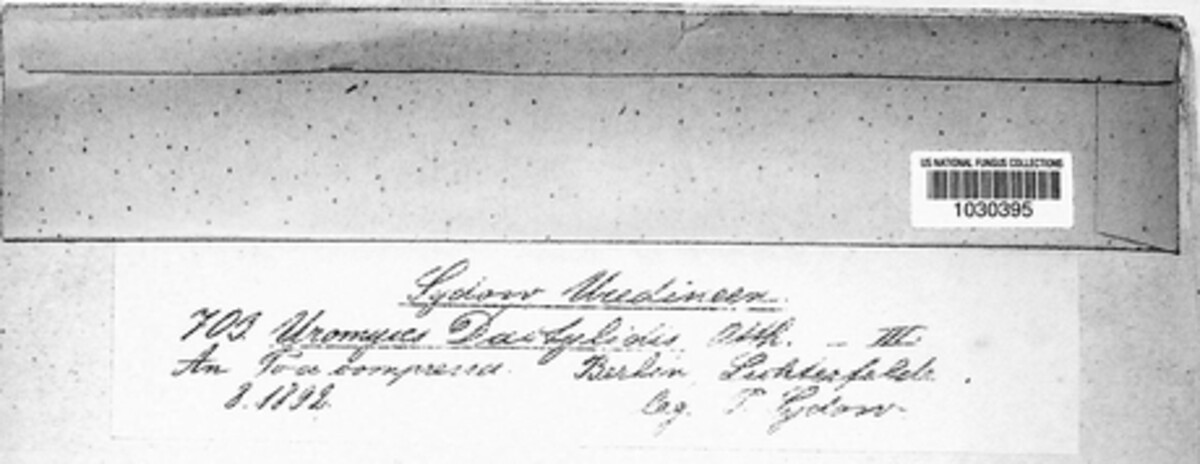 US NATIONAL FUNGUS COLLECTIONS
1030395
Sydow Uredineen.
703. Uromyces Dactylidis Otth. – III.
An Poa compressa. Berlin, Lichterfelde.
8. 1892. leg. P. Sydow.